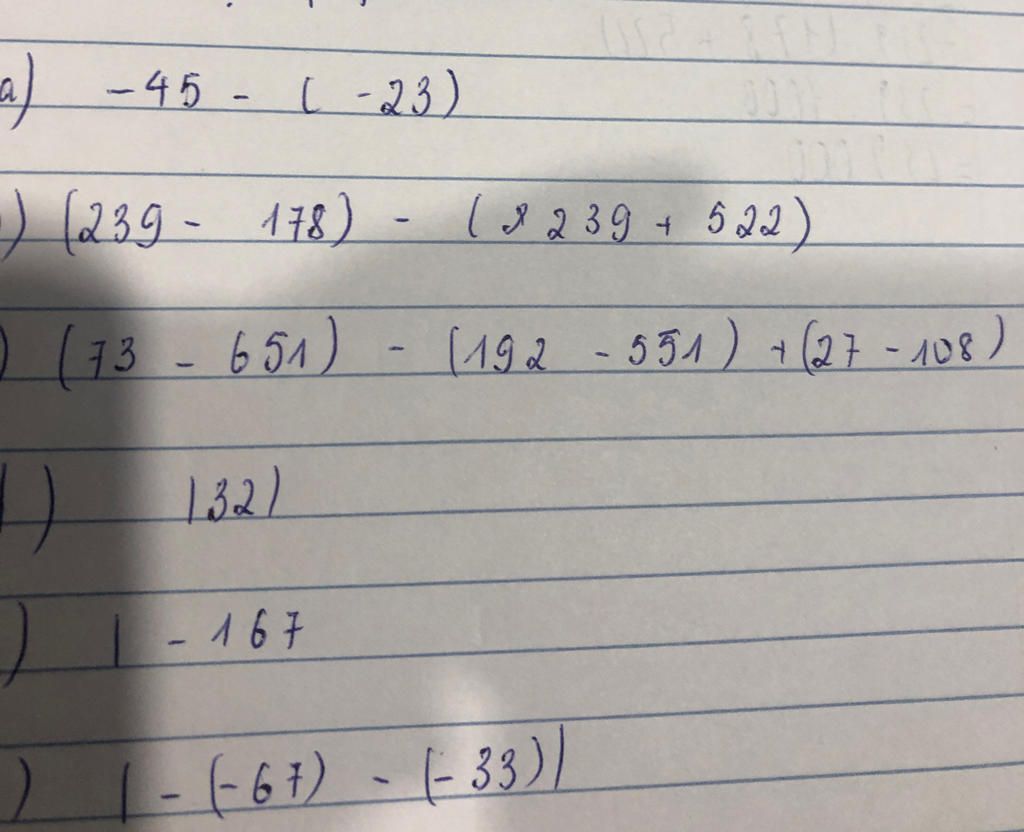 a) -45 - ( -23)
) (239 - 178) - ( 239 + 522)
) (73 - 651) - (192 - 551) + (27 - 108)
) |32|
) | - 167
) | - (-67) - (-33)|